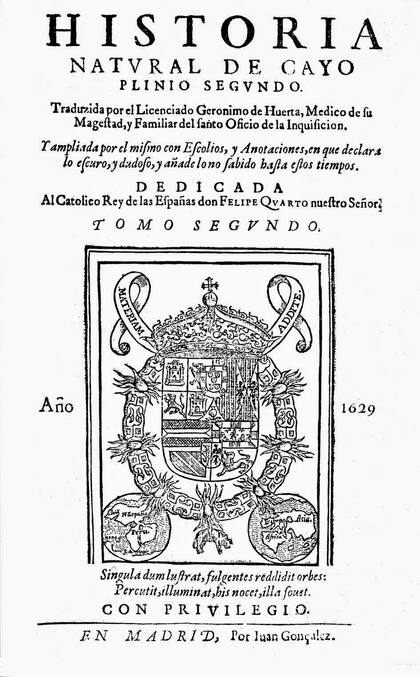 HISTORIA
NATVRAL DE CAYO
PLINIO SEGVNDO.
Traduzida por el Licenciado Geronimo de Huerta, Medico de ſu
Mageſtad, y Familiar del ſanto Oficio de la Inquiſicion.
Y ampliada por el miſmo con Eſcolios, y Anotaciones, en que declara
lo eſcuro, y dudoſo, y añade lo no ſabido haſta eſtos tiempos.
DEDICADA
Al Catolico Rey de las Eſpañas don FELIPE QVARTO nueſtro Señor.
TOMO SEGVNDO.
MATERIAM
ADDITE
Año
1629
N España
Peru.
Aſia.
Africa
Singula dum luſtrat, fulgentes reddidit orbes:
Percutit, illuminat, his nocet, illa fouet.
CON PRIVILEGIO.
EN MADRID, Por Iuan Gonçalez.